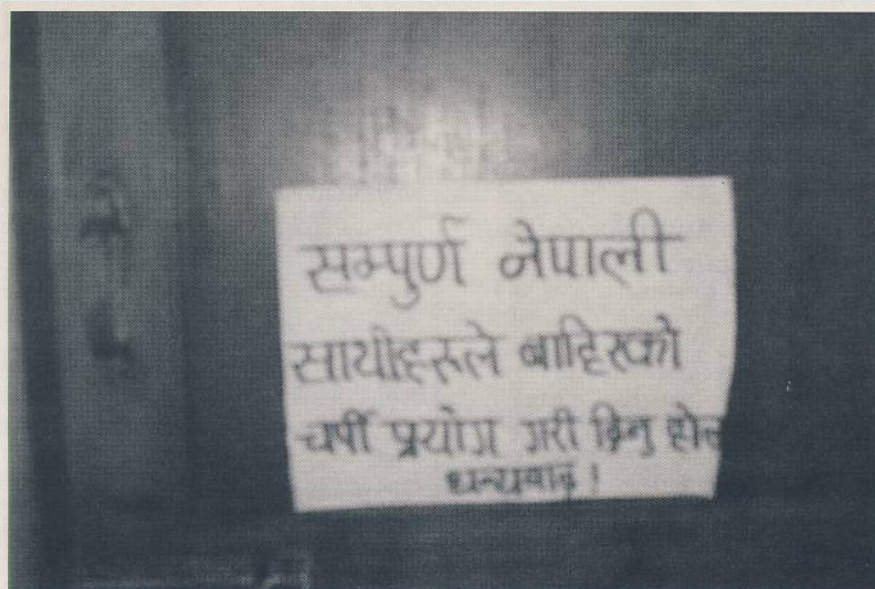 सम्पुर्ण नेपाली
साथीहरुले बाहिरको
चर्पी प्रयोग गरी दिनु होला
धन्यवाद !